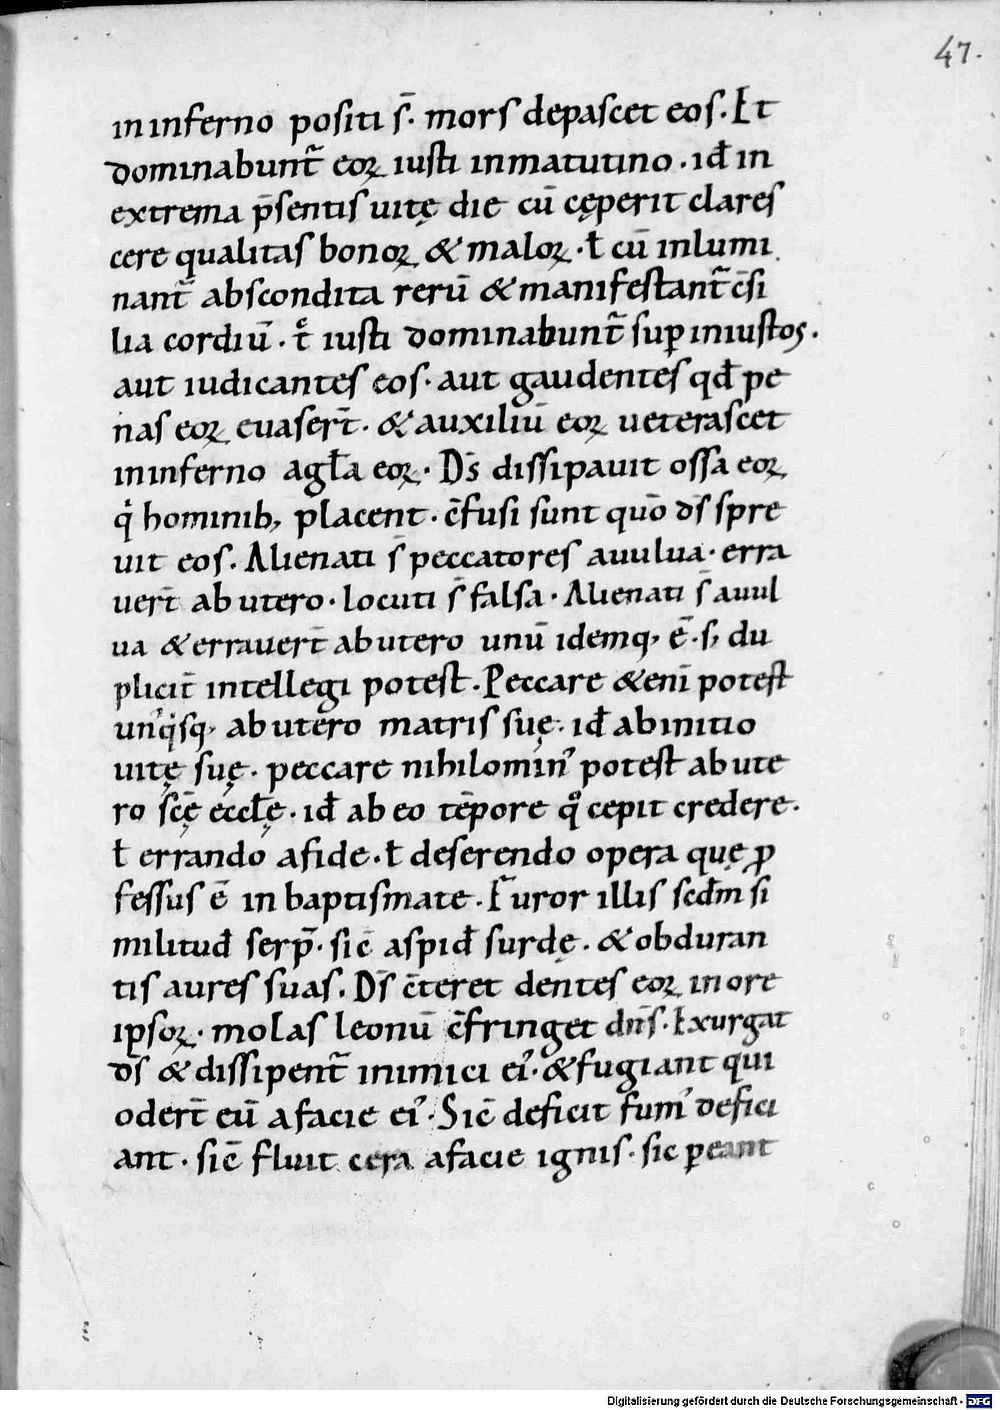 47.
in inferno positi s̄. mors depascet eos. Et
dominabunt᷑ eoꝝ iusti in matutino. id̄ in
extrema p̄sentis uitę die cū cęperit clares
cere qualitas bonoꝝ & maloꝝ. ł cū inlumi
nant᷑ abscondita rerū & manifestant᷑ c̄si
lia cordiū. t̊ iusti dominabunt᷑ suꝑ iniustos.
aut iudicantes eos. aut gaudentes qd̄ pe
nas eoꝝ euasert̄. & auxiliū eoꝝ ueterascet
in inferno agł̄a eoꝝ. D̄s dissipauit ossa eoꝝ
qͥ hominib; placent. c̄fusi sunt quō d̄s spre
uit eos. Alienati s̄ peccatores auulua. erra
uert̄ ab utero. locuti s̄ falsa. Alienati s̄ auul
ua & errauert̄ ab utero unū idemq; ē. s; du
plicit̄ intellegi potest. Peccare & enī potest
unꝰqͥsq; ab utero matris suę. id̄ ab initio
uitę suę. peccare nihilominꝰ potest ab ute
ro sc̄ę eccłę. id̄ ab eo tēpore qͦ cepit credere.
ł errando afide. ł deserendo opera quę ꝓ
fessus ē in baptismate. Furor illis scd̄m si
militud̄ serp̄. sic̄ aspid̄ surdę. & obduran
tis aures suas. D̄s c̄teret dentes eoꝝ in ore
ipsoꝝ. molas leonū c̄fringet dn̄s. Exurgat
d̄s & dissipent᷑ inimici eiꝰ. & fugiant qui
odert̄ eū afacie eiꝰ. Sic̄ deficit fumꝰ defici
ant. sic̄ fluit cera afacie ignis. sic ꝑeant
Digitalisierung gefördert durch die Deutsche Forschungsgemeinschaft - DFG